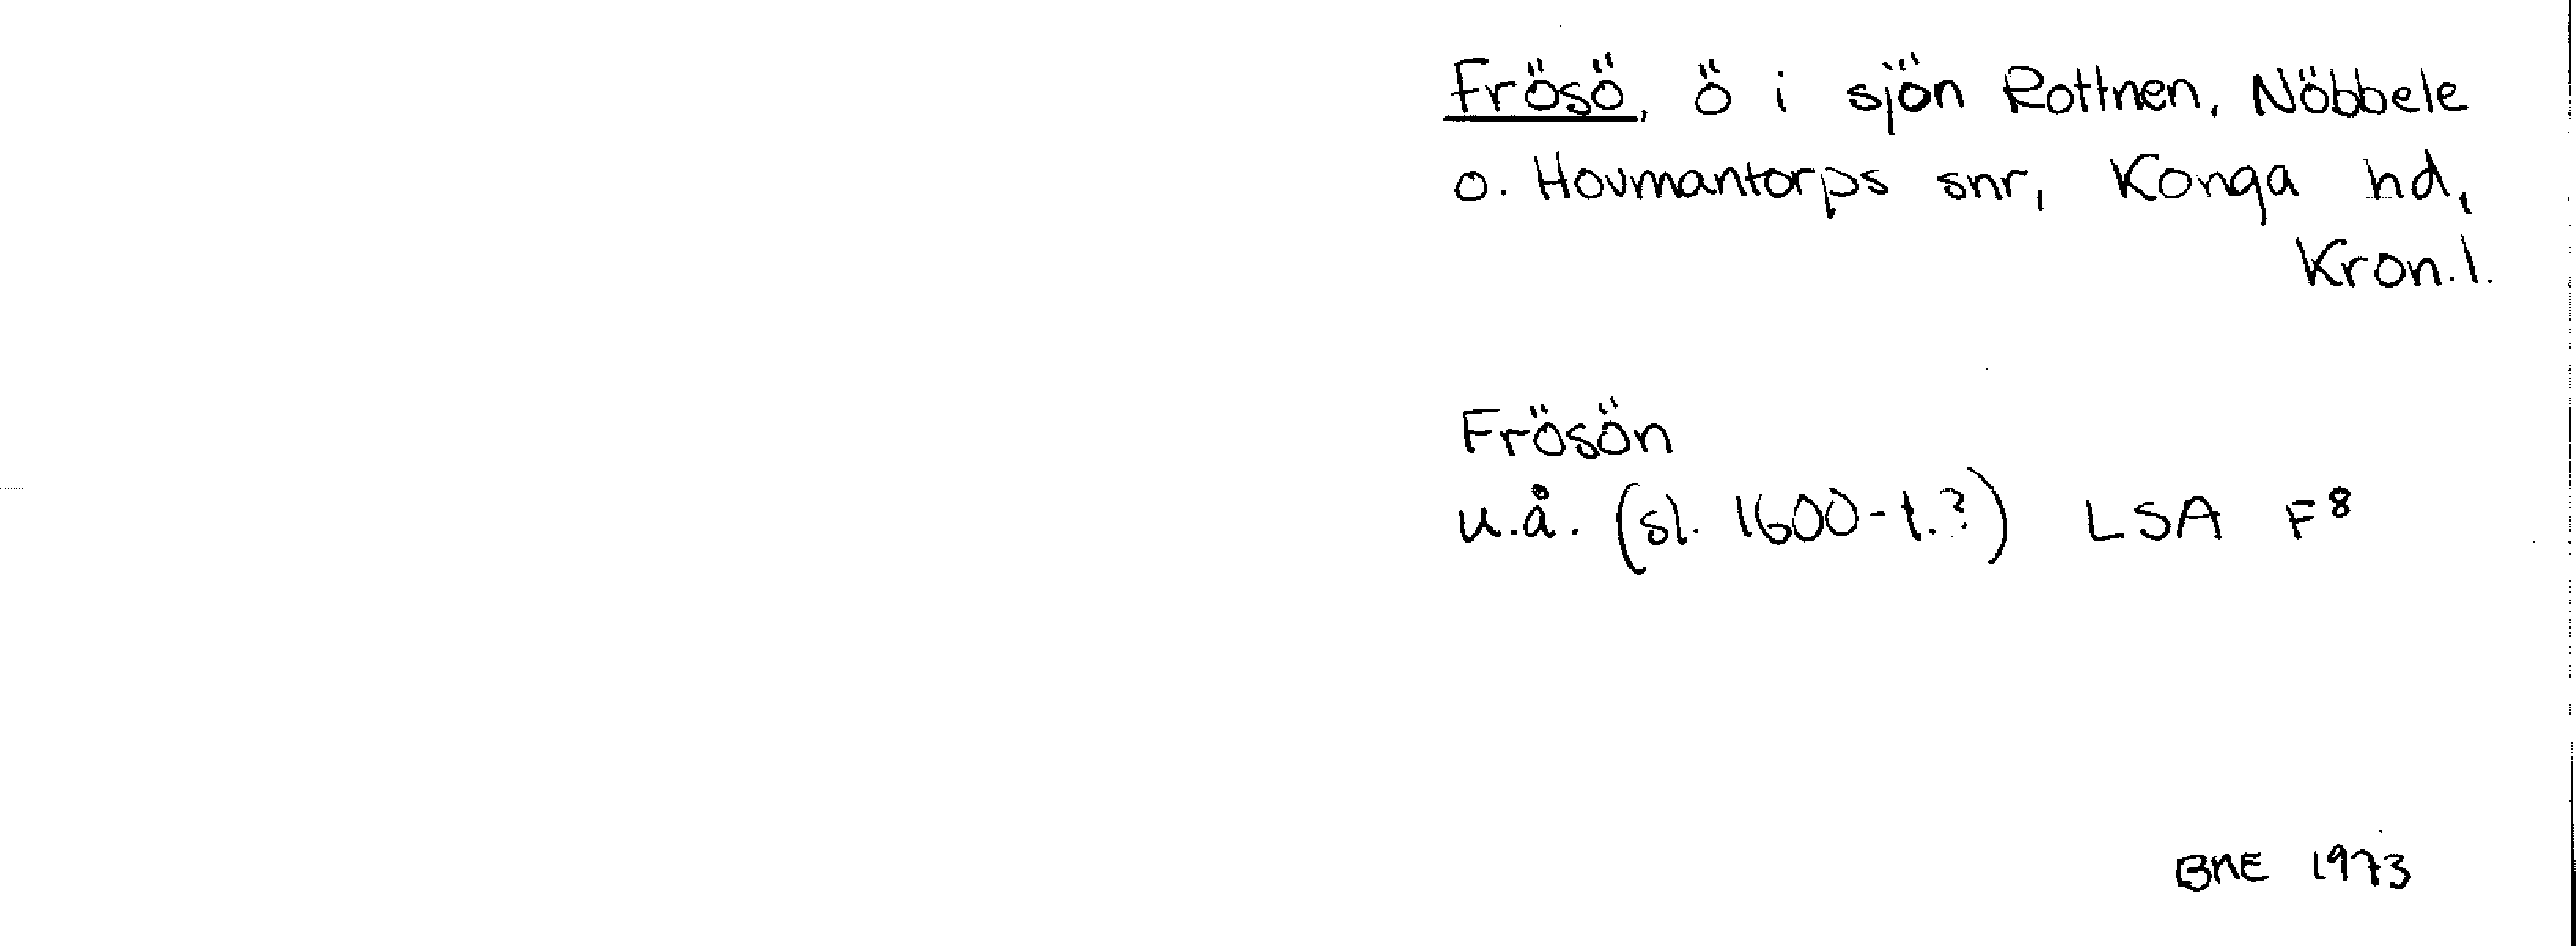 Frösö, ö i sjön Rottnen, Nöbbele
o. Hovmantorps snr, Konga hd,
Kron.l.
Frösön
u.å. (sl. 1600-t.?) LSA F8
BNE 1973